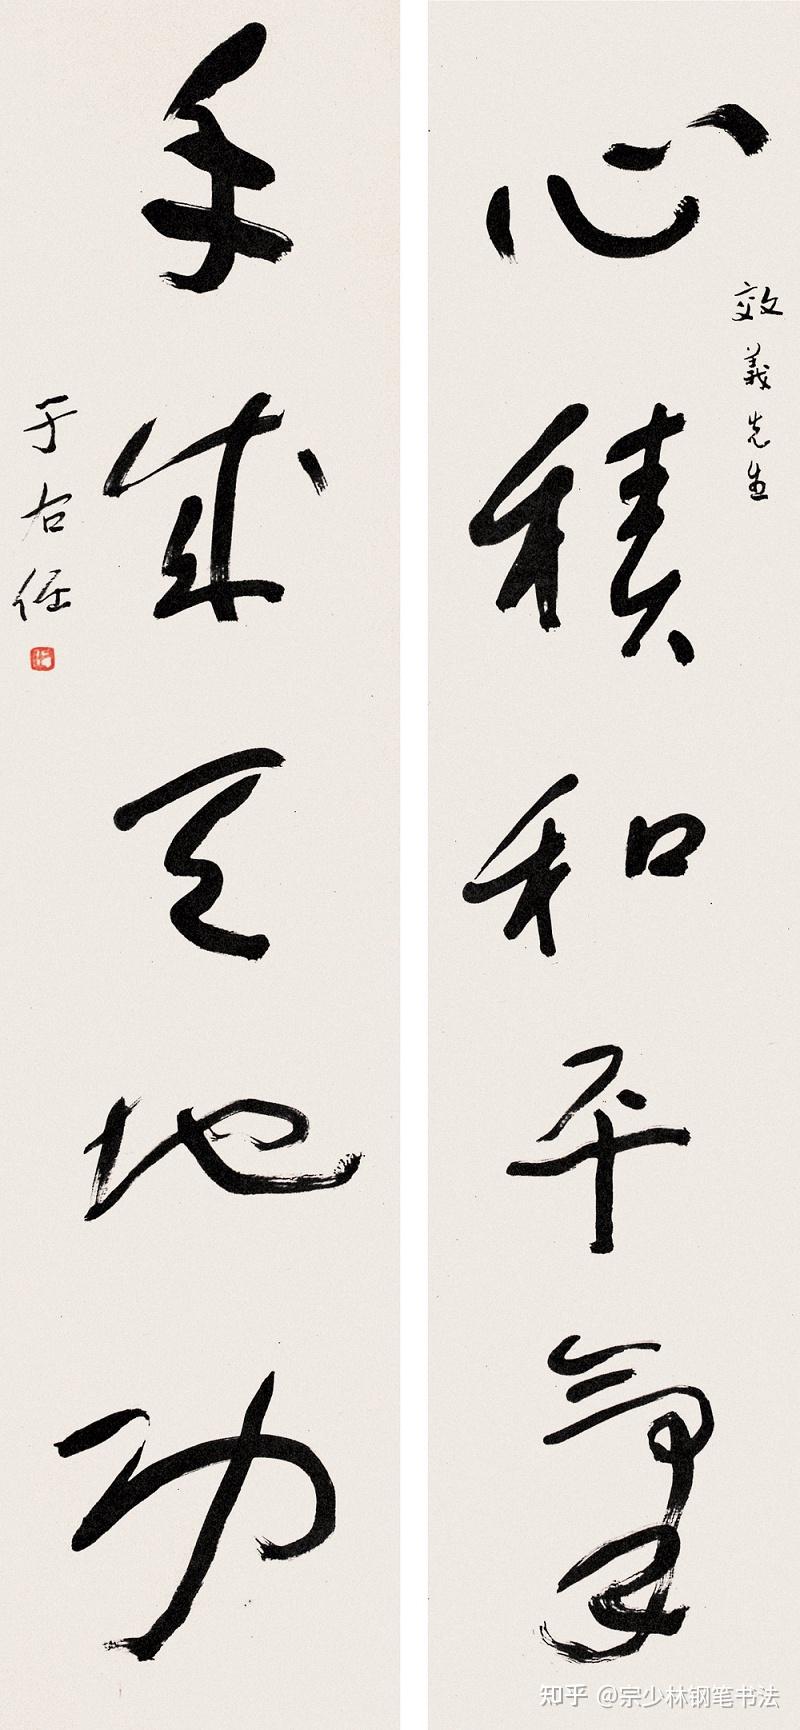 心积和平气
效义先生
手成天地功
于右任
知乎 @宗少林钢笔书法